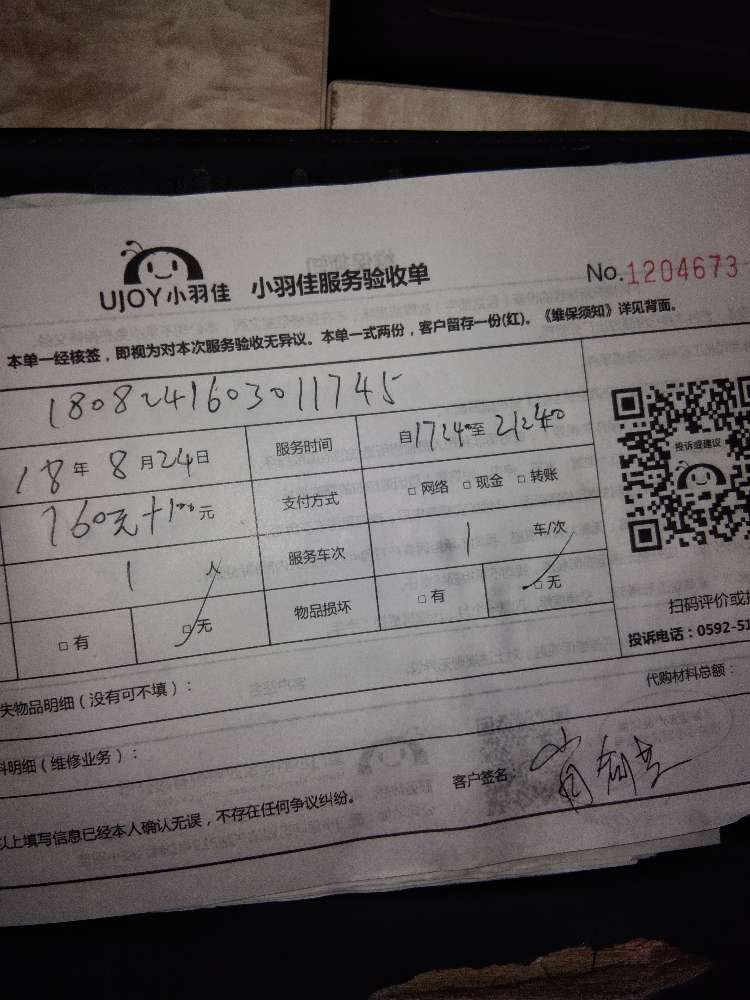 UJOY小羽佳 小羽佳服务验收单 No.1204673
本单一经核签，即视为对本次服务验收无异议。本单一式两份，客户留存一份(红)。《维保须知》详见背面。
1808241603011745
18年8月24日 服务时间 自1724至2124
760元+100元 支付方式 □网络 □现金 □转账
1人 服务车次 1 车/次
□有 □无 物品损坏 □有 □无
投诉或建议
扫码评价或
投诉电话：0592-51
失物品明细（没有可不填）：
代购材料总额：
料明细（维修业务）：
客户签名：
以上填写信息已经本人确认无误，不存在任何争议纠纷。